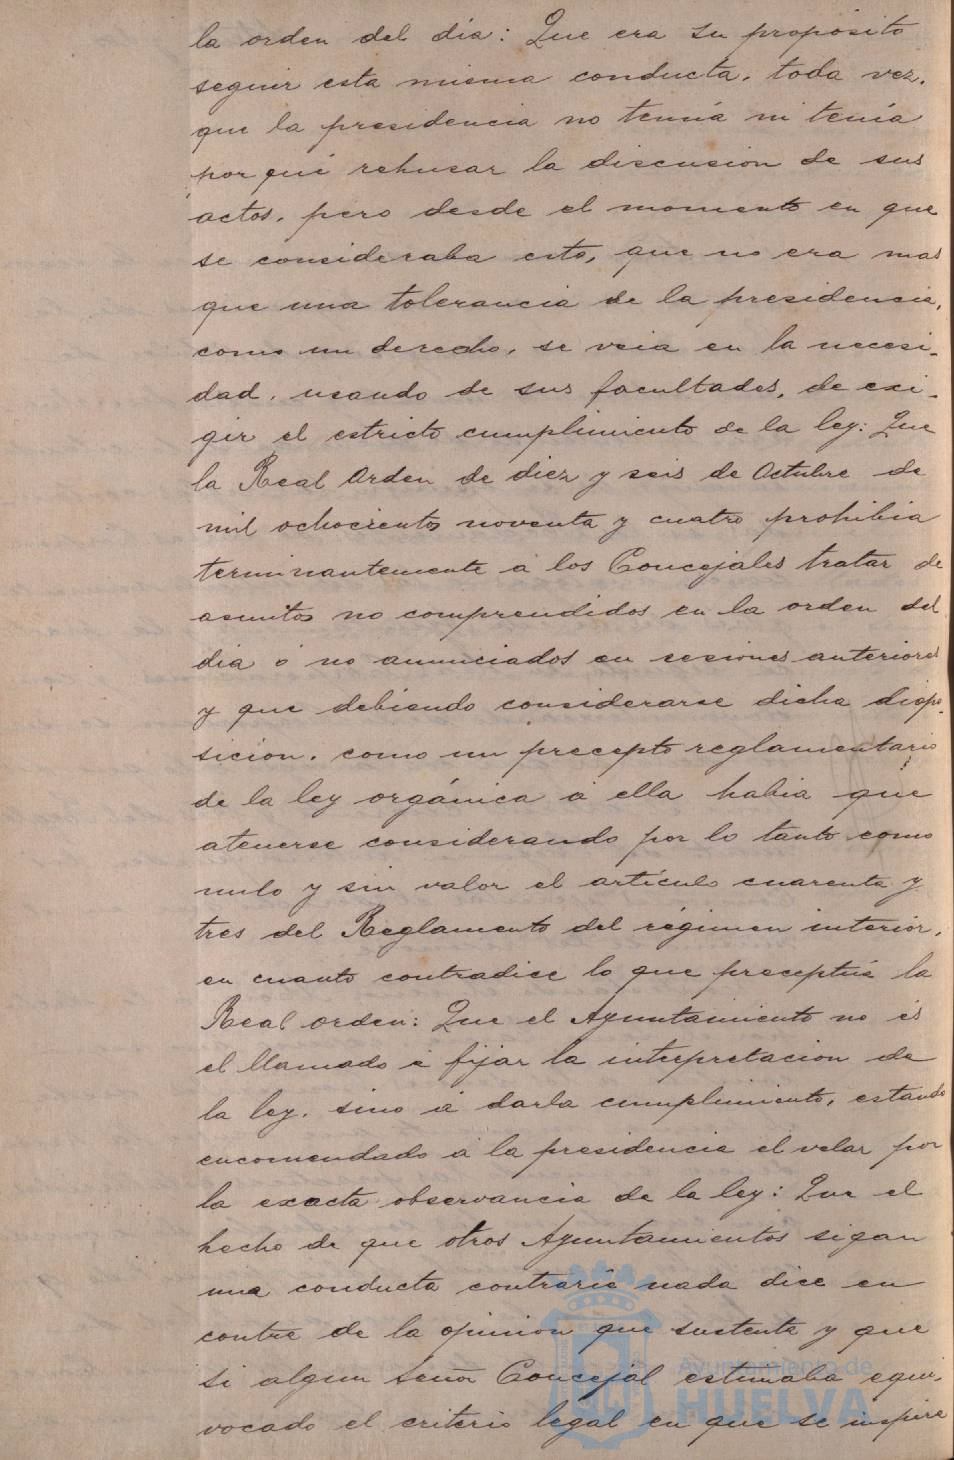 la orden del dia: Que era su propósito
seguir esta misma conducta, toda vez,
que la presidencia no tenia ni tenia
por qué rehusar la discusion de sus
actos, pero desde el momento en que
se consideraba esto, que no era mas
que una tolerancia de la presidencia,
como un derecho, se veia en la necesi-
dad, usando de sus facultades, de exi-
gir el estricto cumplimiento de la ley: Que
la Real Orden de diez y seis de Octubre de
mil ochocientos noventa y cuatro prohibia
terminantemente á los Concejales tratar de
asuntos no comprendidos en la orden del
dia ó no anunciados en sesiones anteriores
y que debiendo considerarse dicha dispo-
sición, como un precepto reglamentario
de la ley orgánica á ella habia que
atenerse considerando por lo tanto como
nulo y sin valor el artículo cuarenta y
tres del Reglamento del régimen interior,
en cuanto contradice lo que preceptúa la
Real orden: Que el Ayuntamiento no es
el llamado á fijar la interpretacion de
la ley, sino á darla cumplimiento, estando
encomendado á la presidencia el velar por
la exacta observancia de la ley: Que el
hecho de que otros Ayuntamientos sigan
una conducta contraria nada dice en
contra de la opinion que sustenta y que
si algun Señor Concejal estimaba equi-
vocado el criterio legal en que se inspira
Ayuntamiento de
HUELVA